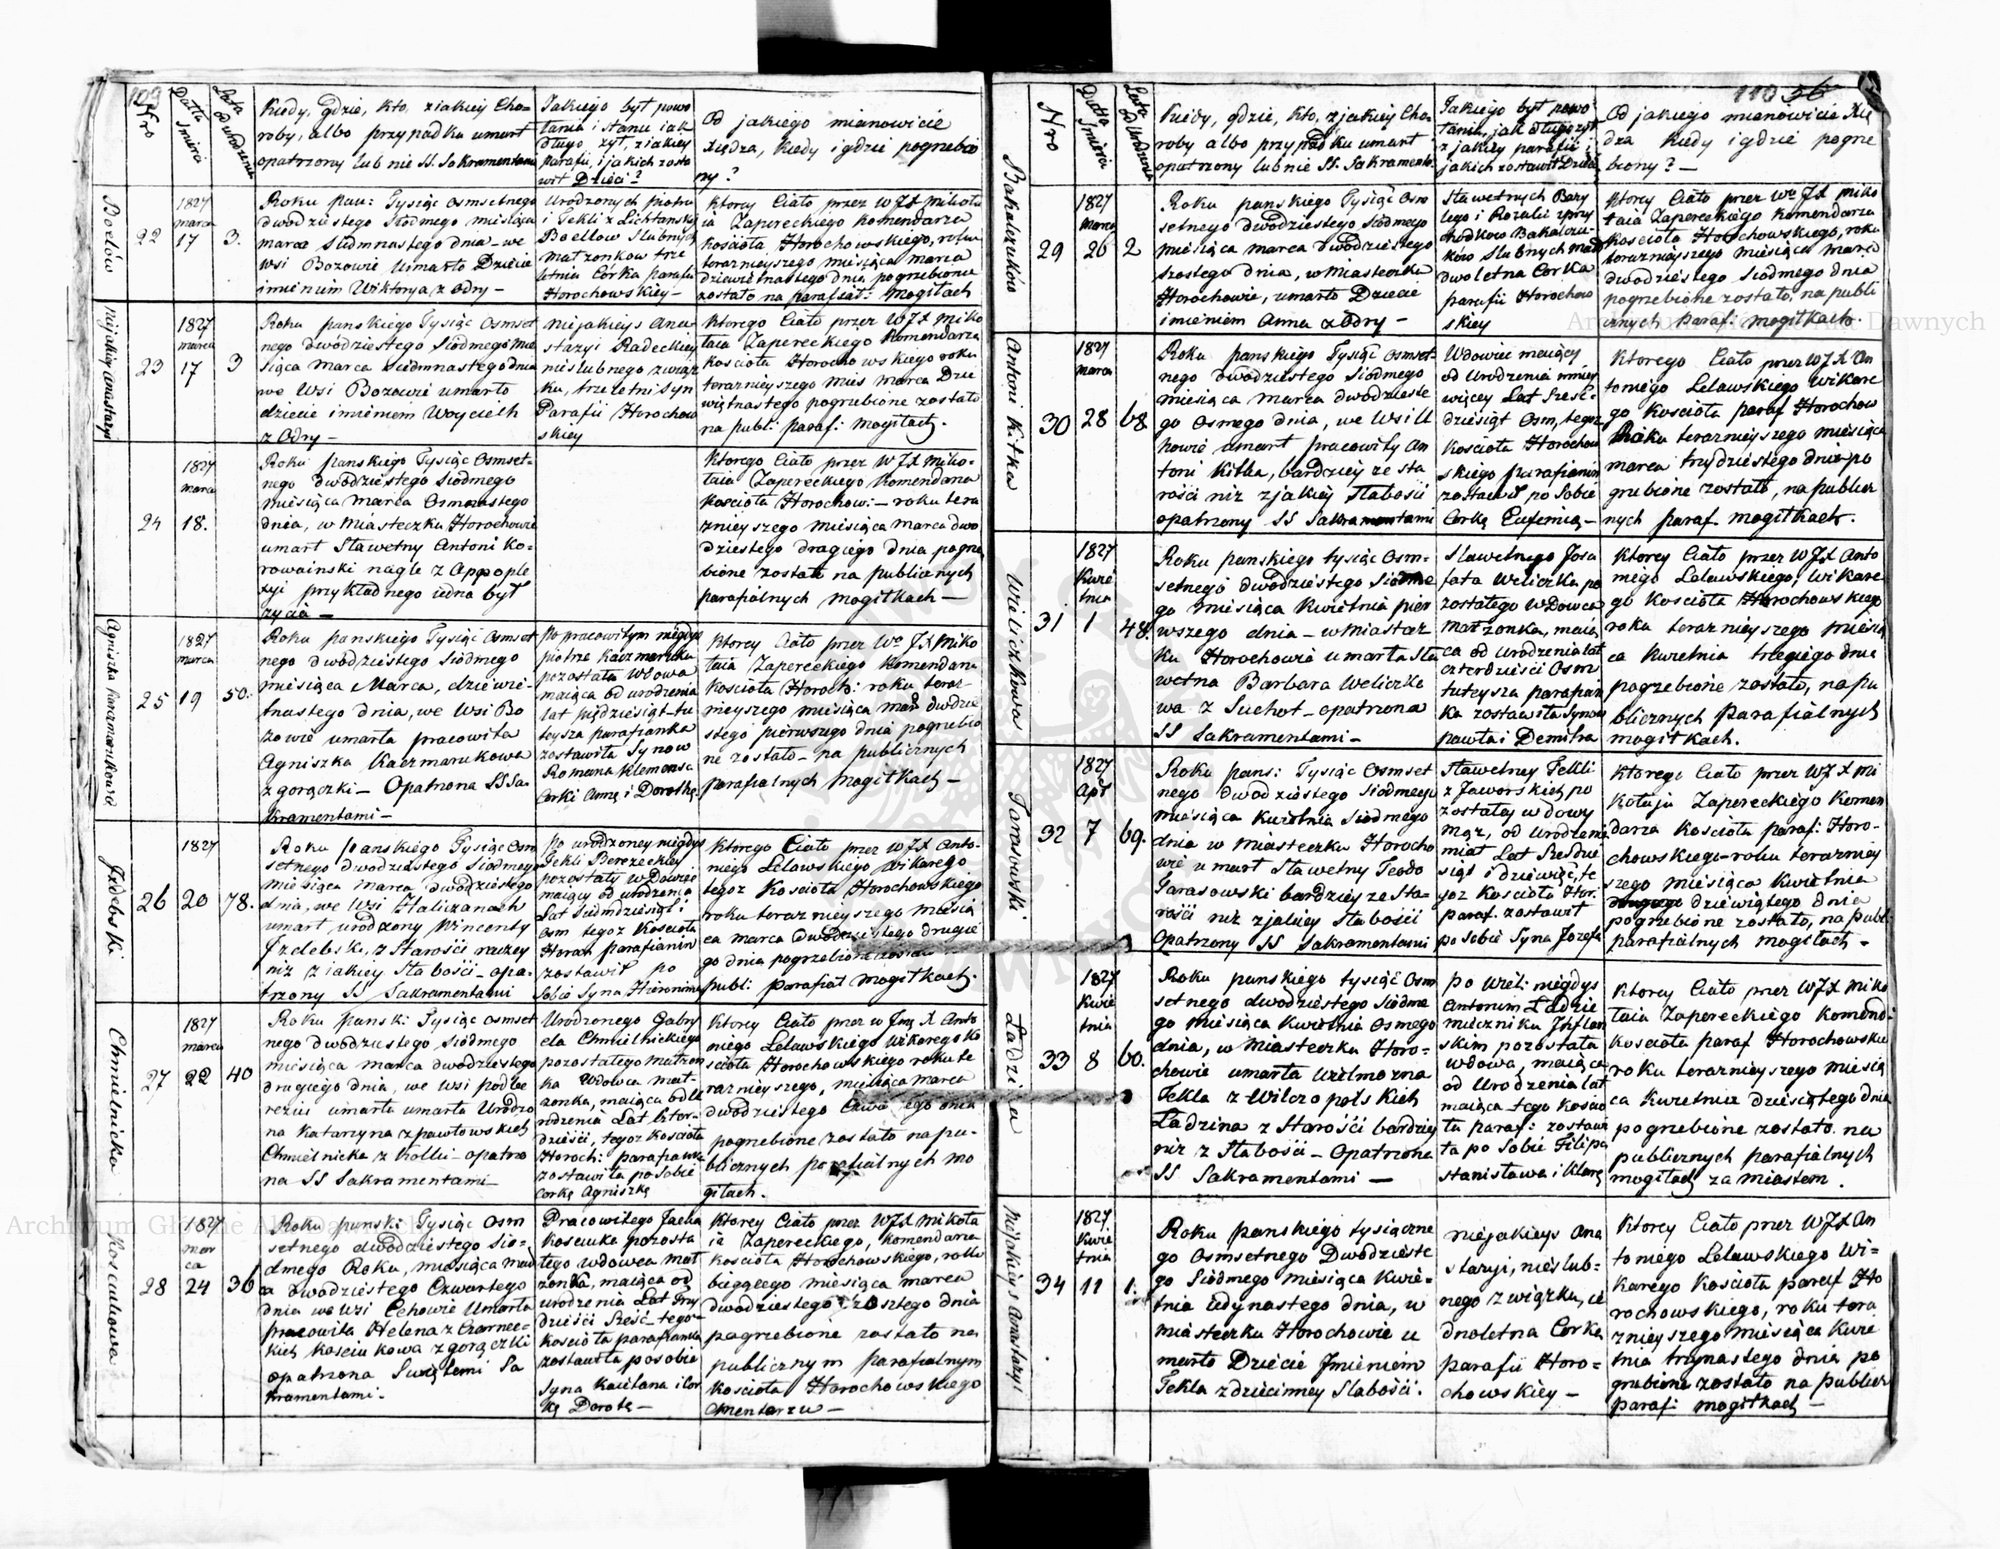 109
Nro
Datta Śmierci
Lata od urodzenia
Kiedy, gdzie, kto, ziakiey Cho-
roby, albo przypadku umarł
opatrzony lub nie SS. Sakramentami
Jakiego był powo
łania i stanu iak
długo żył, z iakiey
parafii, i jakich zosta
wił Dzieci?
Od jakiego mianowicie
Xiędza, kiedy i gdzie pogrzebio
ny?
Boellów
22
1827
marca
17
3.
Roku pan: Tysiąc Osmsetnego
dwódziestego Siódmego miesiąca
marca siedmnastego dnia – we
wsi Bozowie umarło Dziecie
imieniem Wiktorya z Odry –
Urodzonych piotra
i Tekli z Lichtanskich
Boellow Slubnych
małzonkow trze
letnia Córka parafii
Horochowskiey –
Ktorey Ciało przez WJX mikoła
ia Zapereckiego Komendarza
kościoła Horochowskiego, roku
teraznieyszego miesiąca marca
dziewietnastego dnia pogrzebione
zostało na parafial: mogiłach
23
1827
marca
17
3
Roku panskiego Tysiąc Osmset
nego dwódziestego Siódmego mie
siąca Marca Siedmnastego dnia
we Wsi Bozowie umarło
dziecie imieniem Woyciech
z Odry –
niejakieys Ana
stazyi Radeckiey
nieslubnego związ
ku, trzeletni Syn
Parafii Horochow
skiey
Ktorego Ciało przez WJX Miko
łaia Zapereckiego Komendarza
kościoła Horochowskiego roku
teraznieyszego mies Marca Dzie
więtnastego pogrzebione zostało
na publ: paraf: mogiłach.
24
1827
marca
18.
Roku panskiego Tysiąc Osmset-
nego dwódziestego Siódmego
miesiąca Marca Osmnastego
dnia, w Miasteczku Horochowie
umarł Sławetny Antoni Ko-
rowainski nagle z Appople
xyi przykładnego iedna był
zycia –
Ktorego Ciało przez WJX Miko-
łaia Zapereckiego Komendarza
kościoła Horochow: – roku tera
znieyszego miesiąca marca dwo
dziestego drugiego dnia pogrze
bione zostało na publicznych
parafialnych mogiłkach –
Agnieszka Kaczmarukowa
25
1827
marca
19
50.
Roku panskiego Tysiąc Osmset
nego dwódziestego Siódmego
miesiąca Marca, dziewie-
tnastego dnia, we Wsi Bo
zowie umarła pracowita
Agnieszka Kaczmarukowa
z gorączki – Opatrzona SS Sa-
kramentami –
Po pracowitym niegdys
piotrze Kaczmaruku
pozostała wdowa
maiąca od urodzenia
lat pięćdziesiąt – tu
teysza parafianka
zostawiła Synow
Romana Klemensa
Corki Annę i Dorothę
Ktorey Ciało przez We JX Miko
łaia Zapereckiego Komendarza
kościoła Horoch: roku teraz-
nieyszego miesiąca mar dwódzie
stego pierwszego dnia pogrzebio
ne zostało – na publicznych
parafialnych Mogiłkach –
26
1827
20
78.
Roku panskiego Tysiąc Osm
setnego dwódziestego Siódmego
miesiąca marca dwódziestego
dnia, we Wsi Haliczanach
umarł, urodzony Wincenty
Jzdebski, z Starości raczey
niż z iakiey Słabości – opa-
trzony SS Sakramentami
Po urodzoney niegdys
Tekli Berezeckiey
pozostały wdowiec
maiący od urodzenia
Lat siedmdziesiąt i
osm tegoz Kościoła
Horoch parafianin
zostawił po
sobie Syna Hieronima
Ktorego Ciało przez WJX Anto-
niego Lelawskiego wikarego
tegoz Kościoła Horochowskiego
roku teraznieyszego miesią
ca marca dwódziestego drugie
go dnia pogrzebione zostało
publ: parafial mogiłkach.
Chmielnicka
27
1827
marca
22
40
Roku panski: Tysiąc osmset
nego dwódziestego Siódmego
miesiąca marca dwódziestego
drugiego dnia, we wsi podbe
reziu umarła umarła Urodzo
na Katarzyna z pawłowskich
Chmielnicka z Kolki – opatrzo
na SS Sakramentami
Urodzonego Gabry
ela Chmielnickiego
pozostałego małzon
ka wdowca mał-
zonka, maiąca od u
rodzenia Lat Czter-
dzieści, tegoz Kościoła
Horoch: parafianka
zostawiła po sobie
Corkę Agnieszkę
Ktorey Ciało przez W Jmę X Anto
niego Lelawskiego Wikarego Ko
ścioła Horochowskiego roku te
raznieyszego, miesiąca marca
dwódziestego
pogrzebione zostało na pu-
blicznych parafialnych mo
giłach.
28
1827
mar
ca
24
36
Roku panski: Tysiąc Osm
setnego dwódziestego Sió-
dmego Roku, miesiąca mar
ca dwódziestego Czwartego
dnia we wsi Cehowie Umarła
pracowita Helena z Czarnec-
kich kosciukowa z gorączki
opatrzona Swiętemi Sa
kramentami.
Pracowitego Jacka
Kosciuka pozosta
łego wdowca mał
zonka, maiąca od
urodzenia Lat Trzy
dzieści Sześć – tego-
kościoła parafianka
zostawiła po sobie
Syna Kaietana i Cor
kę Dorotę –
Ktorey Ciało przez WJX Mikoła
ia Zapereckiego, Komendarza
kościoła Horochowskiego, roku
bieżącego miesiąca marca
dwódziestego szóstego dnia
pogrzebione zostało na
publicznym parafialnym
kościoła Horochowskiego
Cmentarzu –
110 56
Nro
Datta Śmierci
Lata od Urodzenia
Kiedy, gdzie, kto, z jakiey Cho-
roby albo przypadku umarł
opatrzony lub nie SS. Sakramenta
Jakiego był powo
łania, jak długo żył
z jakiey parafii i
jakich zostawił Dzieci
Od jakiego mianowicie Xię
dza kiedy i gdzie pogrze
biony? –
Bakalczuków
29
1827
marca
26
2
Roku panskiego Tysiąc Osm
setnego dwódziestego Siódmego
miesiąca marca dwódziestego
szostego dnia, w Miasteczku
Horochowie, umarło Dziecie
imieniem Anna z Odry –
Sławetnych Bazy
lego i Rozalii zprzy
chodkow Bakalczu-
ków Slubnych małz
dwoletna Corka
parafii Horochow
skiey
Ktorey Ciało przez We JX Miko
łaia Zapereckiego komendarza
kościoła Horochowskiego, roku
teraznieyszego miesiąca marca
dwódziestego Siódmego dnia
pogrzebione zostało, na publi
cznych paraf: mogiłkach.
Antoni Kitka
30
1827
marca
28
68
Roku panskiego Tysiąc Osmset-
nego dwódziestego Siódmego
miesiąca marca dwódzieste
go Osmego dnia, we Wsi U
howie umarł pracowity An
toni Kitka, bardziey ze sta
rości niz z jakiey słabości
opatrzony SS Sakramentami
Wdowiec maiący
od Urodzenia mniey
więcey Lat Sześć-
dziesiąt Osm, tegoz
kościoła Horochow
skiego parafianin
zostawił po Sobie
Corkę Eufemią –
Ktorego Ciało przez WJX An
toniego Lelawskiego Wikare
go kościoła paraf Horochow
Roku teraznieyszego miesiąca
marca trzydziestego dnia po
grzebione zostało, na publicz
nych paraf. mogiłkach.
Wieliczkowa
31
1827
Kwie
tnia
1
48.
Roku panskiego tysiąc Osm-
setnego dwódziestego Siódme
go miesiąca Kwietnia pier
wszego dnia – w Miastecz
ku Horochowie umarła Sła
wetna Barbara Weliczko
wa z Suchot – opatrzona
SS Sakramentami –
Sławetnego Josa
fata Weliczka po
zostałego Wdowca
Małzonka, maią
ca od urodzenia lat
czterdzieści Osm
tuteysza parafian
ka zostawiła Synow
pawła i Demitra
Ktorey Ciało przez WJX Anto
niego Lelawskiego, Wikare-
go kościoła Horochowskiego
roku teraznieyszego miesią
ca kwietnia trzeciego dnia
pogrzebione zostało, na pu
blicznych Parafialnych
mogiłkach.
Tarasowski
32
1827
Apr
7
69.
Roku pans: Tysiąc Osmset
nego dwódziestego Siódmego
miesiąca Kwietnia Siódmego
dnia w Miasteczku Horocho
wie umarł Sławetny Teodo
Tarasowski bardziey ze Sta-
rości niz z jakiey Słabości
Opatrzony SS Sakramentami
Sławetney Tekli
z Jaworskich, po
zostałey wdowy
mąz, od Urodzenia
miał Lat Sześdzie
siąt i dziewięć, te
goz kościoła Hor.
paraf. zostawił
po Sobie Syna Jozefa
Ktorego Ciało przez WJX Mi
kołaja Zapereckiego Komen
darza Kościoła paraf: Horo-
chowskiego – roku terazniey
szego miesiąca Kwietnia
dziewiątego dnia
pogrzebione zostało, na publ:
parafialnych mogiłach –
Ładzina
33
1827
Kwie
tnia
8
60.
Roku panskiego tysiąc Osm
setnego dwódziestego Siódme
go miesiąca Kwietnia Osmego
dnia, w Miasteczku Horo-
chowie umarła Wielmozna
Tekla z Wilczopolskich
Ładzina z Starości bardziey
niz z Słabości – Opatrzona
SS Sakramentami –
po Wiel: niegdys
Antonim Ładzie
mieczniku Jnflan
skim pozostała
wdowa, maiąca
od Urodzenia lat
maiąca – tego kościo
ła paraf: zostawi
ła po Sobie Filipa
Stanisława i Klarę
Ktorey Ciało przez WJX Miko
łaia Zapereckiego komend:
kościoła paraf Horochowskie
roku teraznieyszego miesią
ca kwietnia dziesiątego dnia
pogrzebione zostało na
publicznych parafialnych
mogiłach za miastem.
34
1827.
Kwie
tnia
11
1.
Roku panskiego tysiączne
go Osmsetnego Dwódzieste
go Siódmego miesiąca Kwie-
tnia iedynastego dnia, w
miasteczku Horochowie u
marło Dziecie Jmieniem
Tekla z dziecinney Słabości.
niejakieys Ana
stazyi, nieslub-
nego związku, ie
dnoletna Corka
parafii Horo=
chowskiey –
Ktorey Ciało przez WJX An
toniego Lelawskiego Wi=
karego kościoła paraf Ho
rochowskiego, roku tera
znieyszego miesiąca Kwie
tnia trzynastego dnia po
grzebione zostało na publicz
paraf: mogiłkach –
Archiwum Główne Akt Dawnych